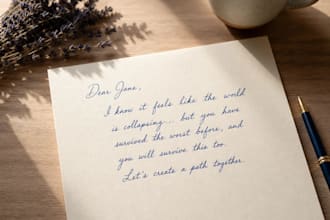 Dear Jane,
I know it feels like the world
is collapsing... but you have
survived the worst before, and
you will survive this too.
Let's create a path together.